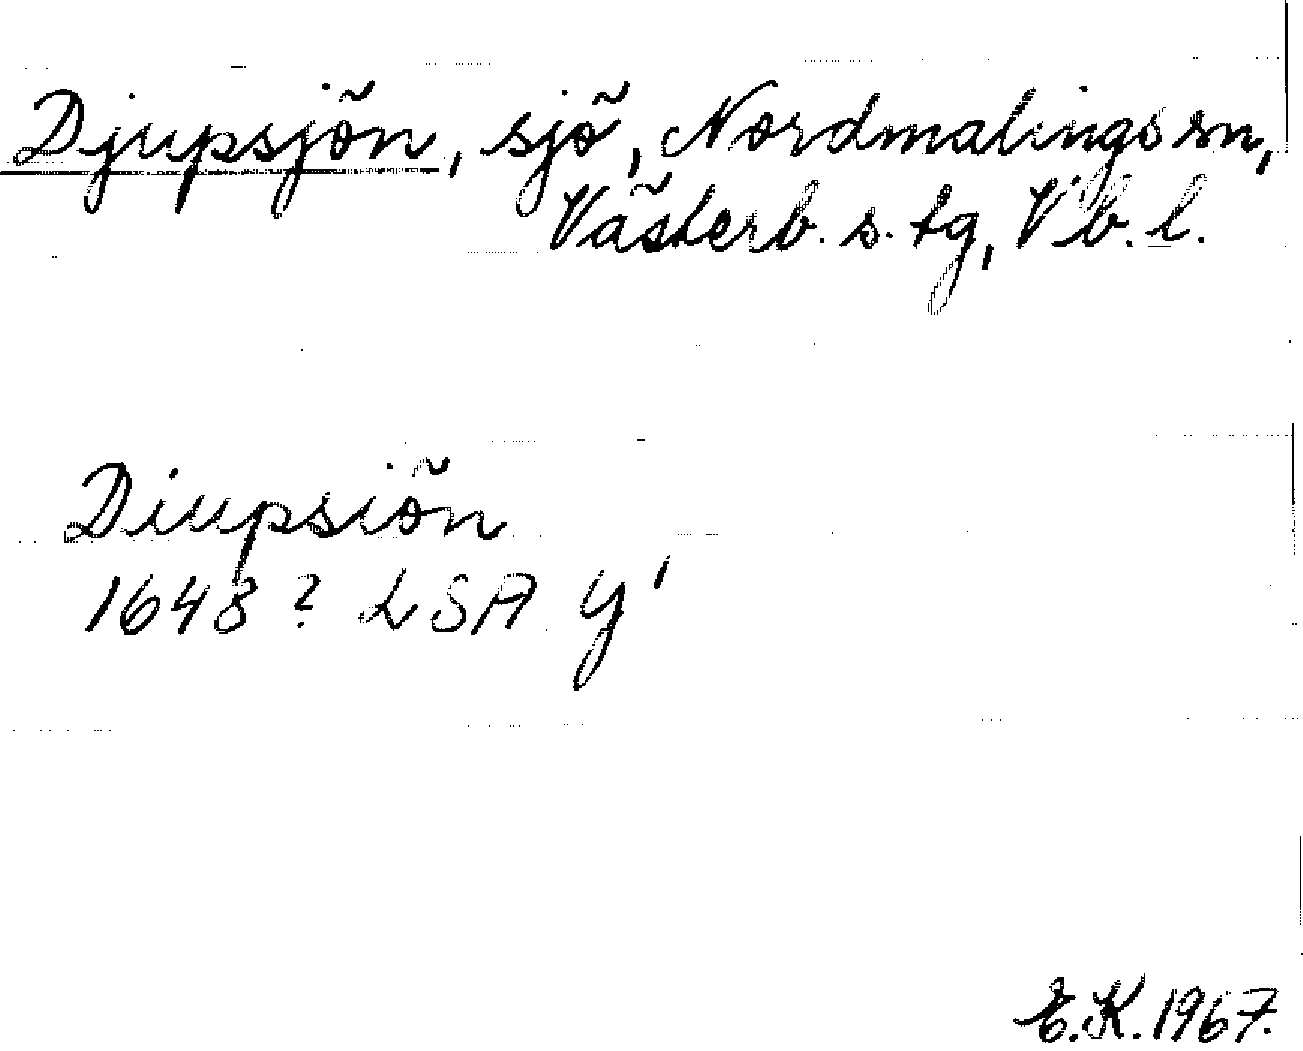 Djupsjön, sjö, Nordmalings sn,
Västerb. s. tg, Vb. l.
Diupsiön
1648? LSA Y¹
E.K. 1967.